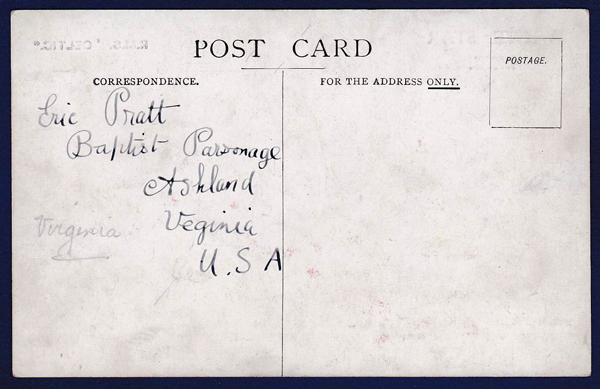 POST CARD
CORRESPONDENCE.
FOR THE ADDRESS ONLY.
POSTAGE.
Eric Pratt
Baptist Parsonage
Ashland
Veginia
U.S A
Virginia
R.M.S. "CELTIC"